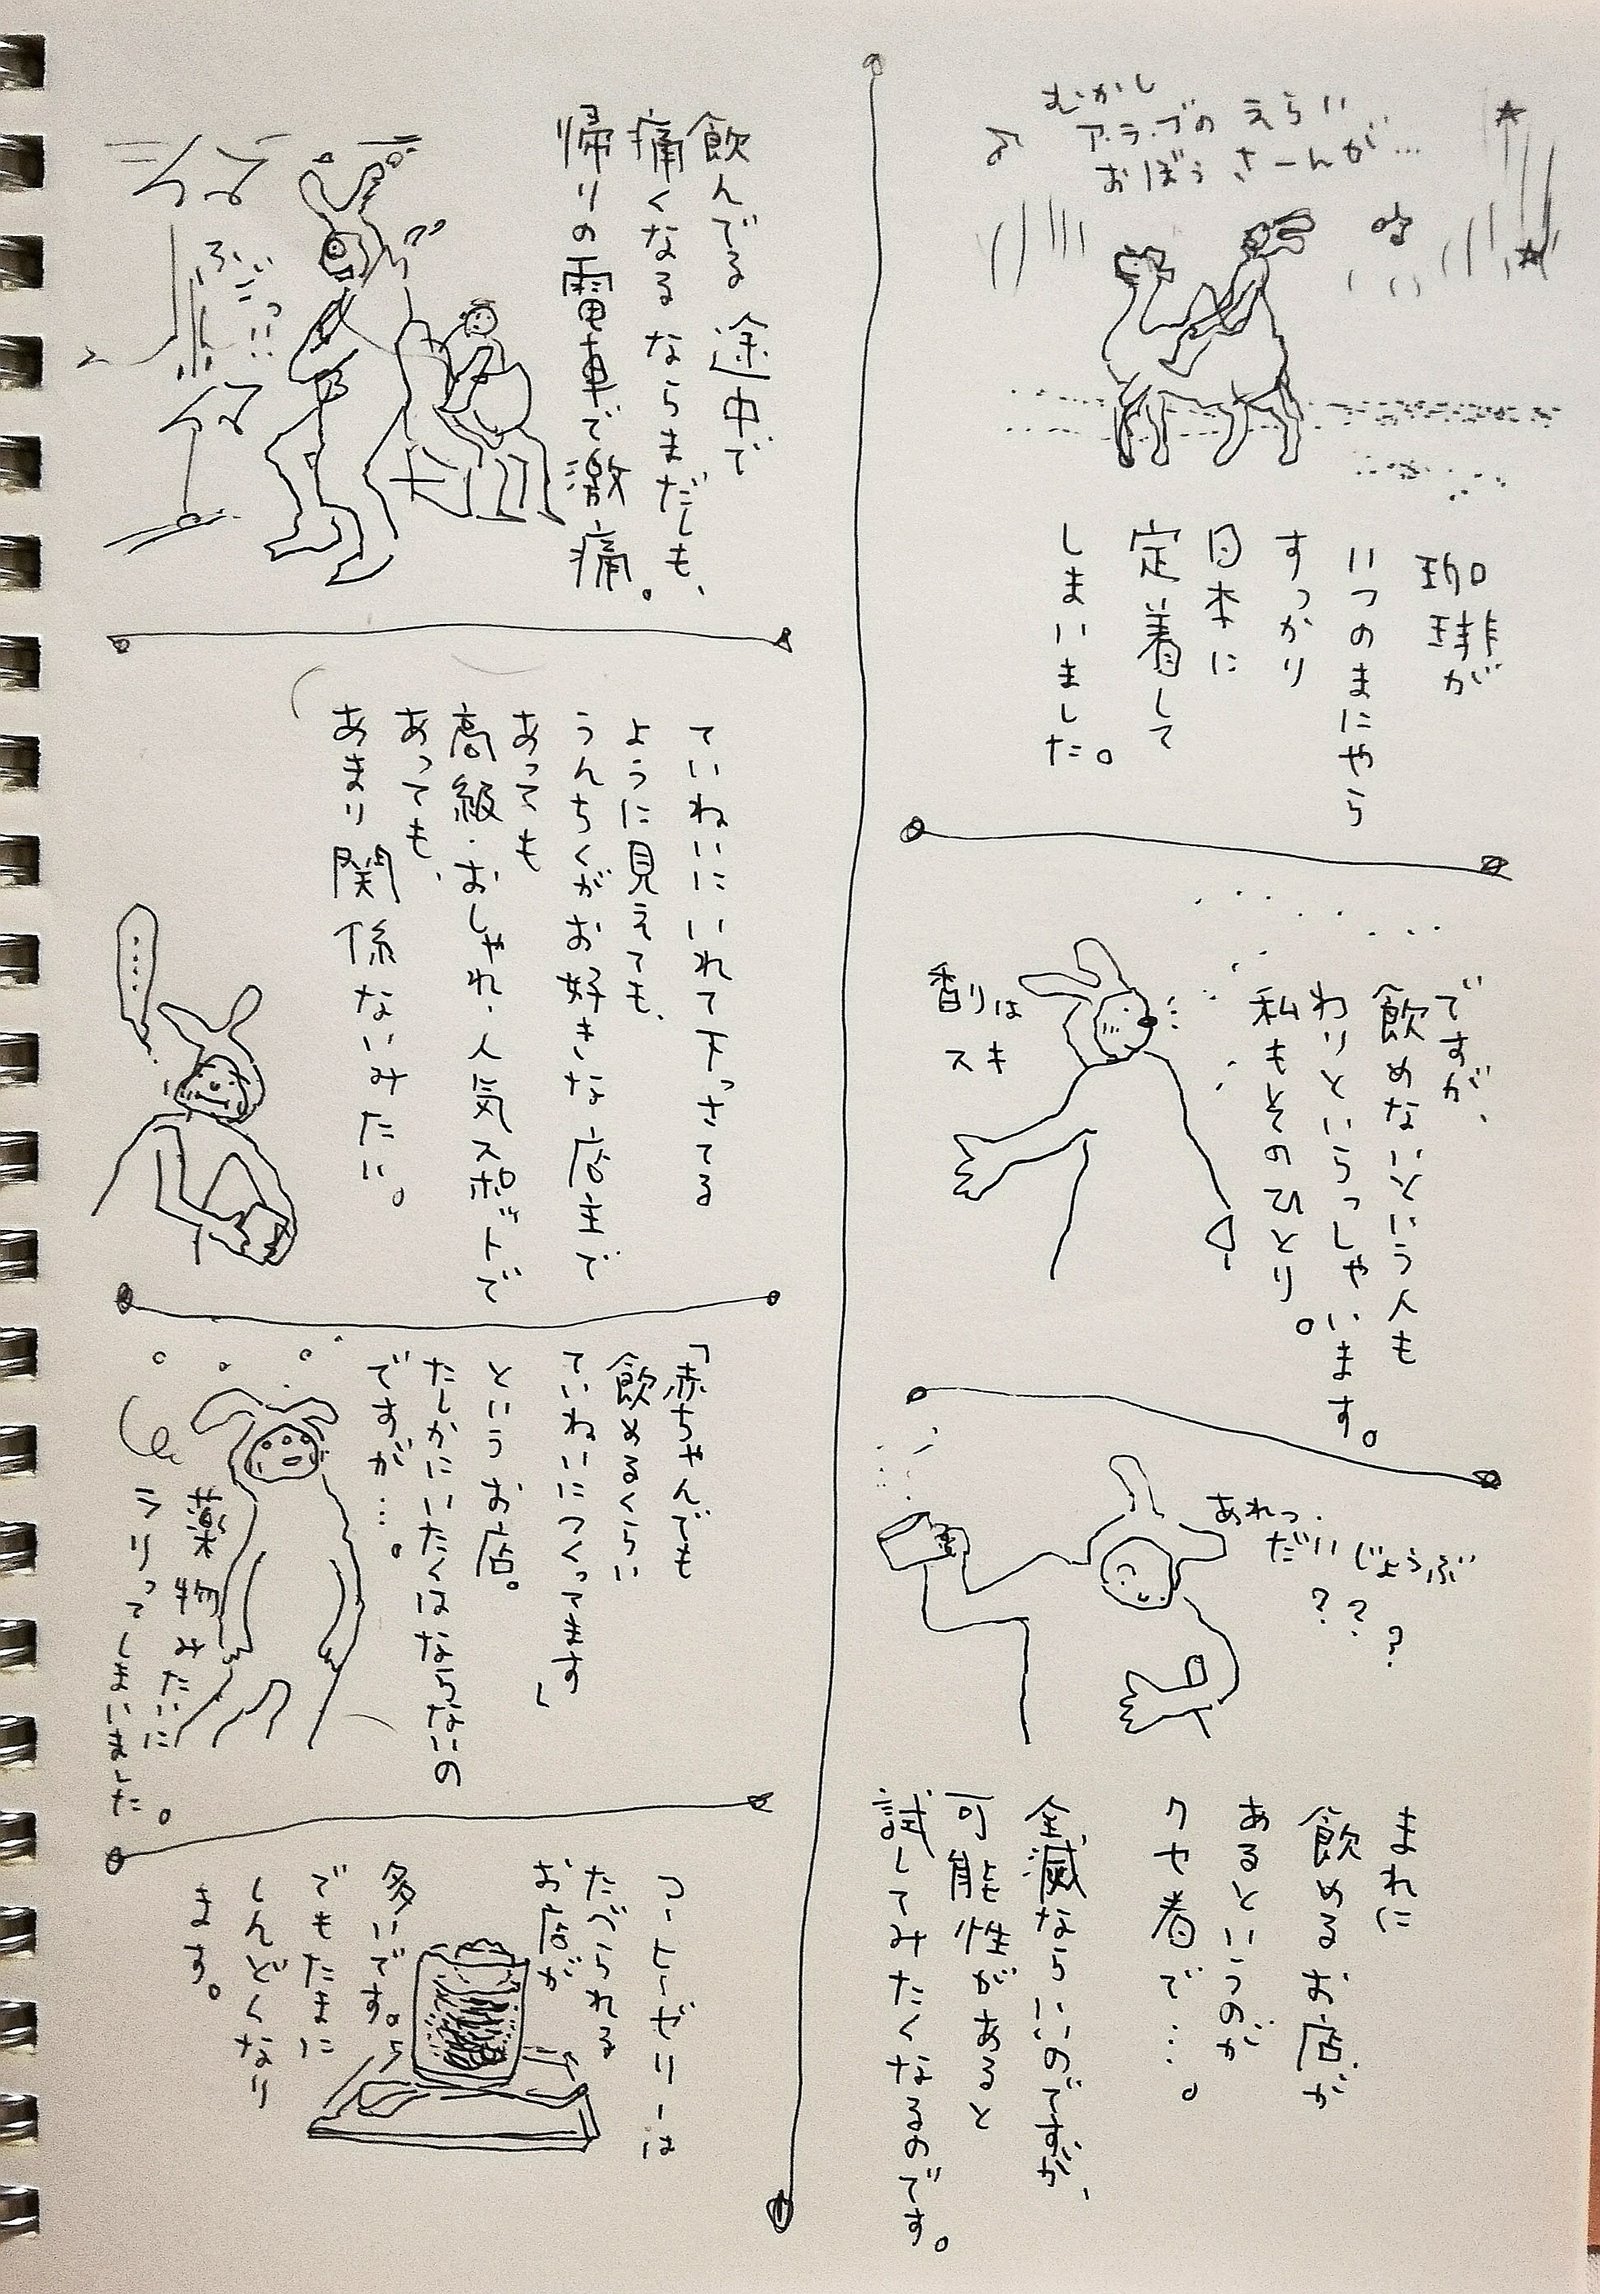 むかし
ア・ラ・ブの えらい
おぼうさーんが…
珈琲が
いつのまにやら
すっかり
日本に
定着して
しまいました。
ですが、
飲めないという人も
わりといらっしゃいます。
私もそのひとり。
香りは
スキ
あれっ
だいじょうぶ
???
まれに
飲めるお店が
あるというのが
クセ者で…。
全滅ならいいのですが、
可能性があると
試してみたくなるのです。
飲んでる途中で
痛くなるならまだしも、
帰りの電車で激痛。
ふごっ!!
ていねいにいれて下さってる
ように見えても、
うんちくがお好きな店主で
あっても
高級・おしゃれ・人気スポットで
あっても、
あまり関係ないみたい。
……
「赤ちゃんでも
飲めるくらい
ていねいにつくってます」
というお店。
たしかにいたくはならないの
ですが…。
薬物みたいに
ラリってしまいました。
コーヒーゼリーは
たべられる
お店が
多いです。
でもたまに
しんどくなり
ます。